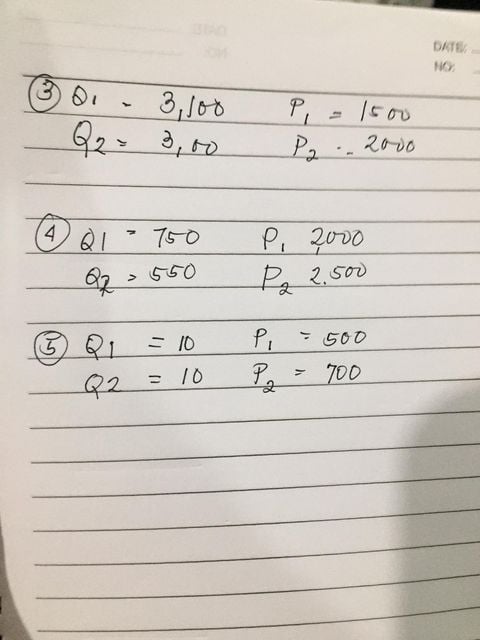 DATE:
NO:
③ Q1 - 3,100 P1 = 1500
Q2 = 3,00 P2 -- 2000
④ Q1 = 750 P1 2,000
Q2 = 550 P2 2.500
⑤ Q1 = 10 P1 = 500
Q2 = 10 P2 = 700